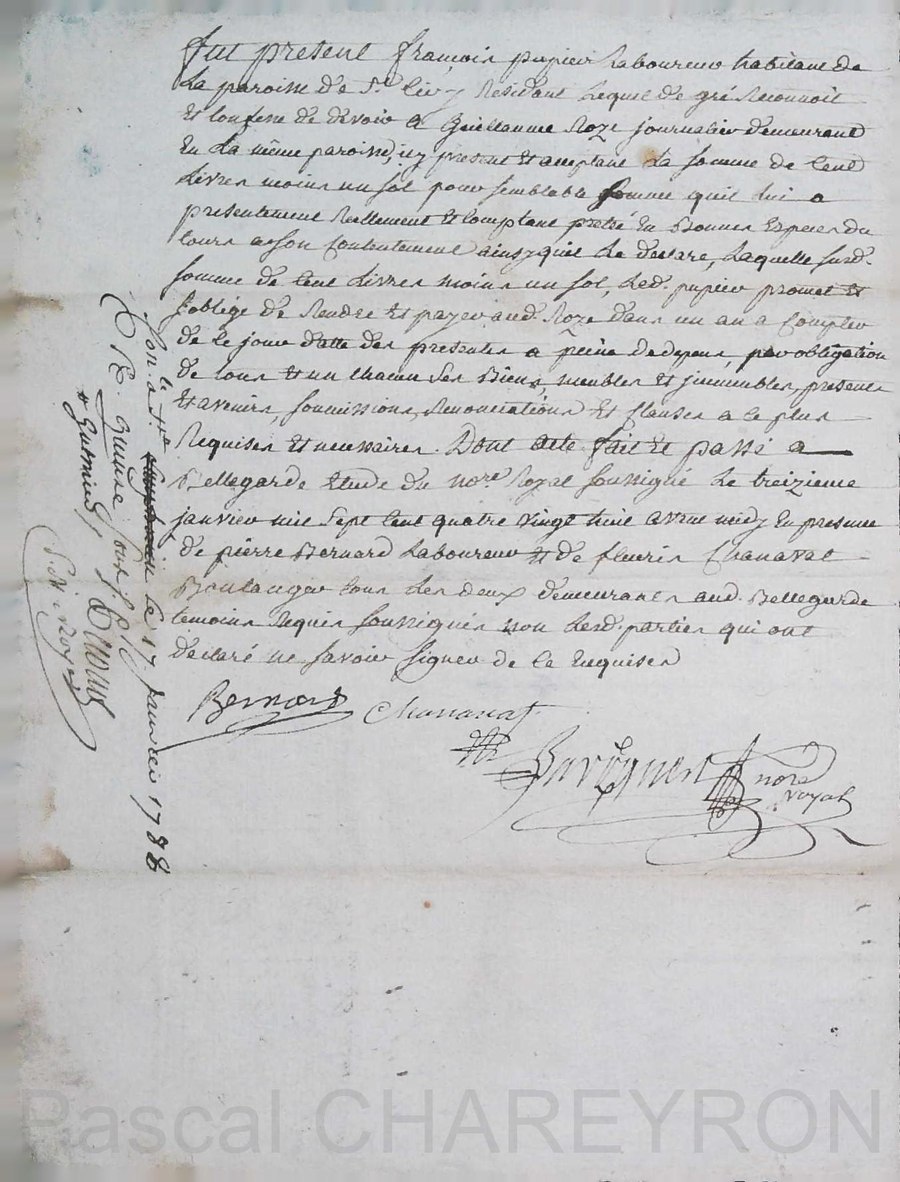 fut present françois pupier laboureur habitant de
la paroisse de St Residant lequel de gré Reconnoit
Et confesse de devoir a Guillaume Roze journalier demeurant
En la même paroisse, icy present Et acceptant la somme de Cent
livres moins un sol pour semblable somme quil lui a
presentement Reellement Et comptant presté En Bonnes Especes du
cours a son Contentement ainsy quil le declare, laquelle susd.
somme de Cent livres moins un sol, led. pupier promet Et
soblige de Rendre Et payer aud. Roze dans un an a Compter
de ce jour datte des presentes a peine de depens, par obligation
de tous Et un chacun ses Biens, meubles Et immeubles, presents
Et avenir, soumissions, Renonciations Et clauses a ce plus
Requises Et necessaires. Dont acte fait Et passé a
Bellegarde Etude du nore Royal soussigné le treizieme
janvier mil sept Cent quatre vingt huit avant midy En presence
de pierre Bernard laboureur Et de fleurin Chanavat
Boulanger tous les deux demeurants aud. Bellegarde
temoins Requis soussignés non lesd. parties qui ont
declaré ne savoir signer de ce Enquises
Bernard Chanavat
nore
royal
le 17 janvier 1788
R. quinze sous